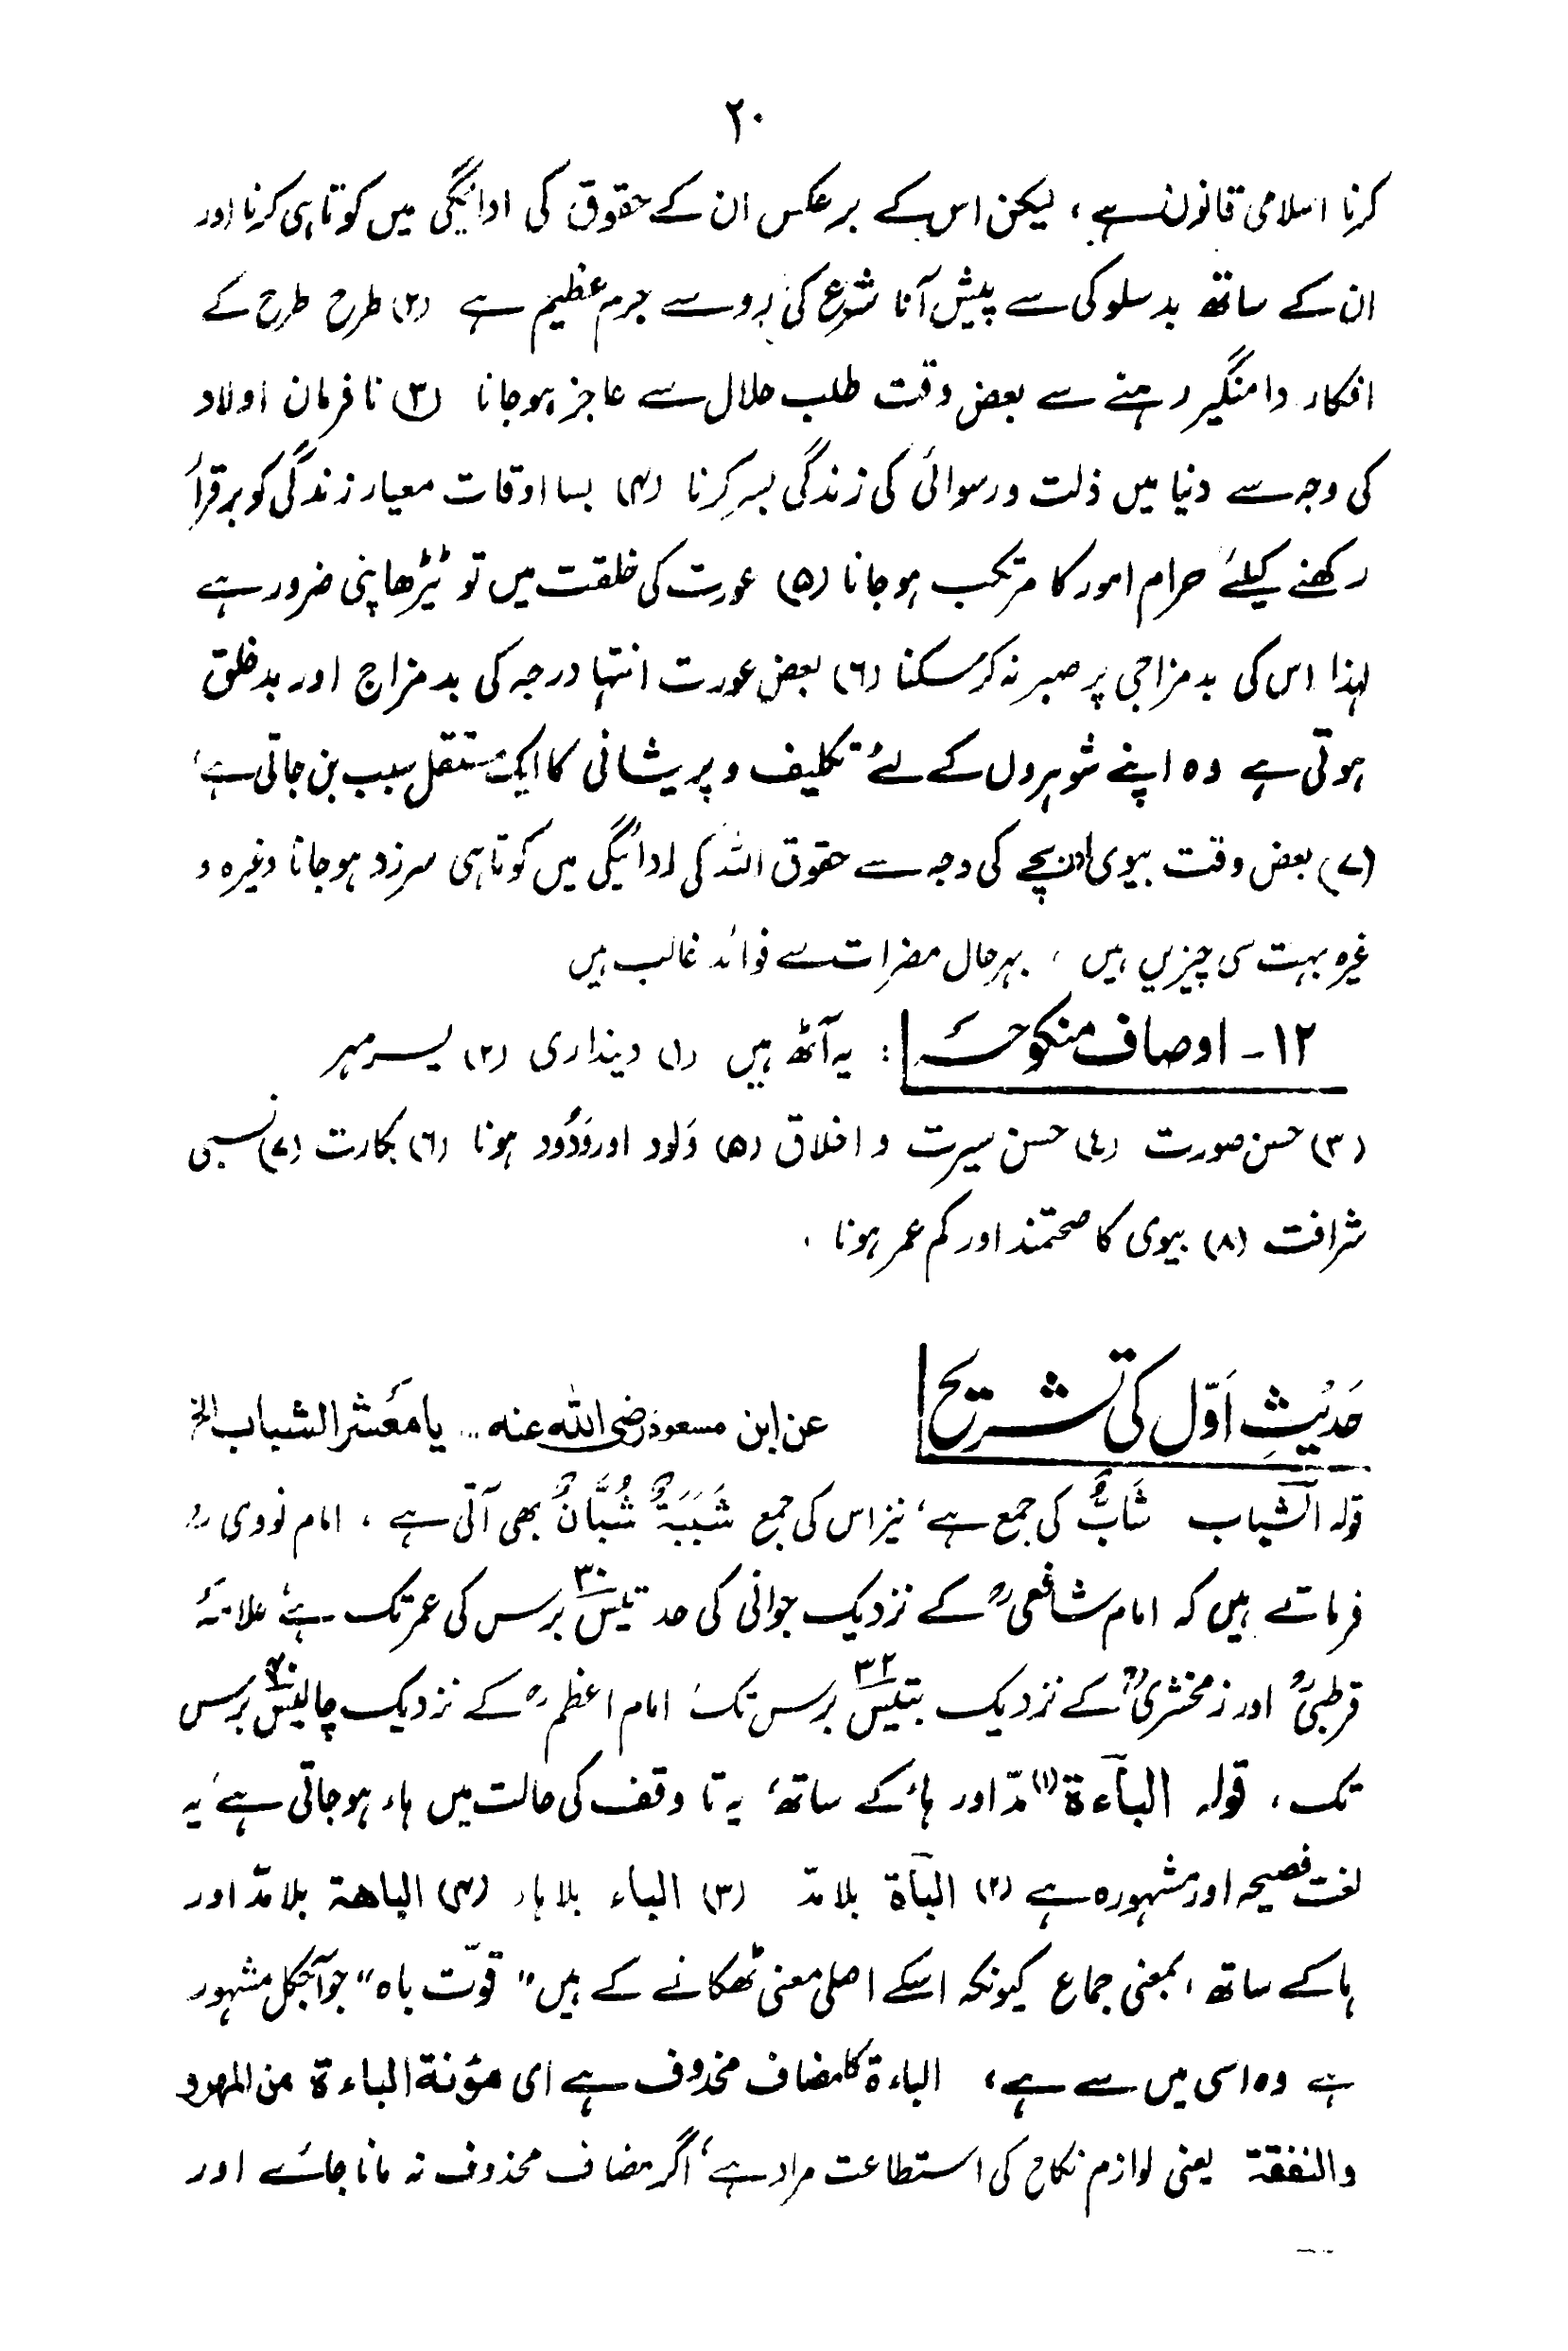 ۲۰
کرنا اسلامی قانون ہے، لیکن اس کے برعکس ان کے حقوق کی ادائیگی میں کوتاہی کرنا اور
ان کے ساتھ بدسلوکی سے پیش آنا شرع کی رو سے جرم عظیم ہے (۲) طرح طرح کے
افکار دامنگیر رہنے سے بعض وقت طلب حلال سے عاجز ہوجانا (۳) نافرمان اولاد
کی وجہ سے دنیا میں ذلت ورسوائی کی زندگی بسر کرنا (۴) بسا اوقات معیار زندگی کو برقرار
رکھنے کیلئے حرام امور کا مرتکب ہوجانا (۵) عورت کی خلقت میں تو ٹیڑھاپنی ضرور ہے
لہذا اس کی بدمزاجی پر صبر نہ کرسکنا (٦) بعض عورت انتہا درجہ کی بدمزاج اور بدخلق
ہوتی ہے وہ اپنے شوہروں کے لئے تکلیف و پریشانی کا ایک مستقل سبب بن جاتی ہے،
(۷) بعض وقت بیوی اور بچے کی وجہ سے حقوق اللہ کی ادائیگی میں کوتاہی سرزد ہوجانا وغیرہ و
غیرہ بہت سی چیزیں ہیں، بہرحال مضرات سے فوائد غالب ہیں
۱۲ـ اوصاف منکوحہ : یہ آٹھ ہیں (۱) دینداری (۲) یسر مہر
(۳) حسن صورت (٤) حسن سیرت و اخلاق (۵) وَلود اور وَدُود ہونا (٦) بکارت (۷) نسبی
شرافت (۸) بیوی کا صحتمند اور کم عمر ہونا ۔
حَدِیْثِ اَوّل کی تشریح عن ابن مسعود رضی اللہ عنہ .. یا معشر الشباب الخ
قولہ الشباب شَابٌّ کی جمع ہے، نیز اس کی جمع شَبَبَةٌ شُبَّانٌ بھی آتی ہے، امام نووی رح
فرماتے ہیں کہ امام شافعیؒ کے نزدیک جوانی کی حد تیس ۳۰ برس کی عمر تک ہے، علامہ
قرطبیؒ اور زمخشریؒ کے نزدیک بتیس ۳۲ برس تک، امام اعظمؒ کے نزدیک چالیس ۴۰ برس
تک، قولہ البآءة (۱) مدّ اور ہاء کے ساتھ، یہ تا وقف کی حالت میں ہاء ہوجاتی ہے، یہ
لغت فصیحہ اور مشہورہ ہے (۲) البآة بلا مدّ (۳) الباء بلا ہاء (۴) الباھة بلا مدّ اور
ہا کے ساتھ، بمعنی جماع کیونکہ اسکے اصلی معنی ٹھکانے کے ہیں "قوّت باہ" جو آجکل مشہور
ہے وہ اسی میں سے ہے، الباءة کا مضاف محذوف ہے ای مؤنة الباءة من المهر و
والنفقة یعنی لوازم نکاح کی استطاعت مراد ہے، اگر مضاف محذوف نہ مانا جائے اور